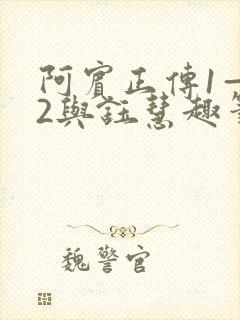 阿賓正傳1—
2與鈺慧趣
魏警官